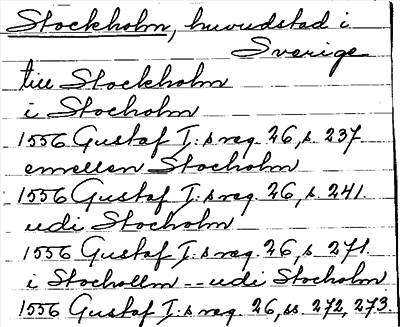 Stockholm, huvudstad i
Sverige
till Stockholm
i Stocholm
1556 Gustaf I:s reg. 26, s. 237.
emellan Stocholm
1556 Gustaf I:s reg. 26, s. 241.
udi Stocholm
1556 Gustaf I:s reg. 26, s. 271.
i Stochollm -- udi Stocholm
1556 Gustaf I:s reg. 26, ss. 272, 273.